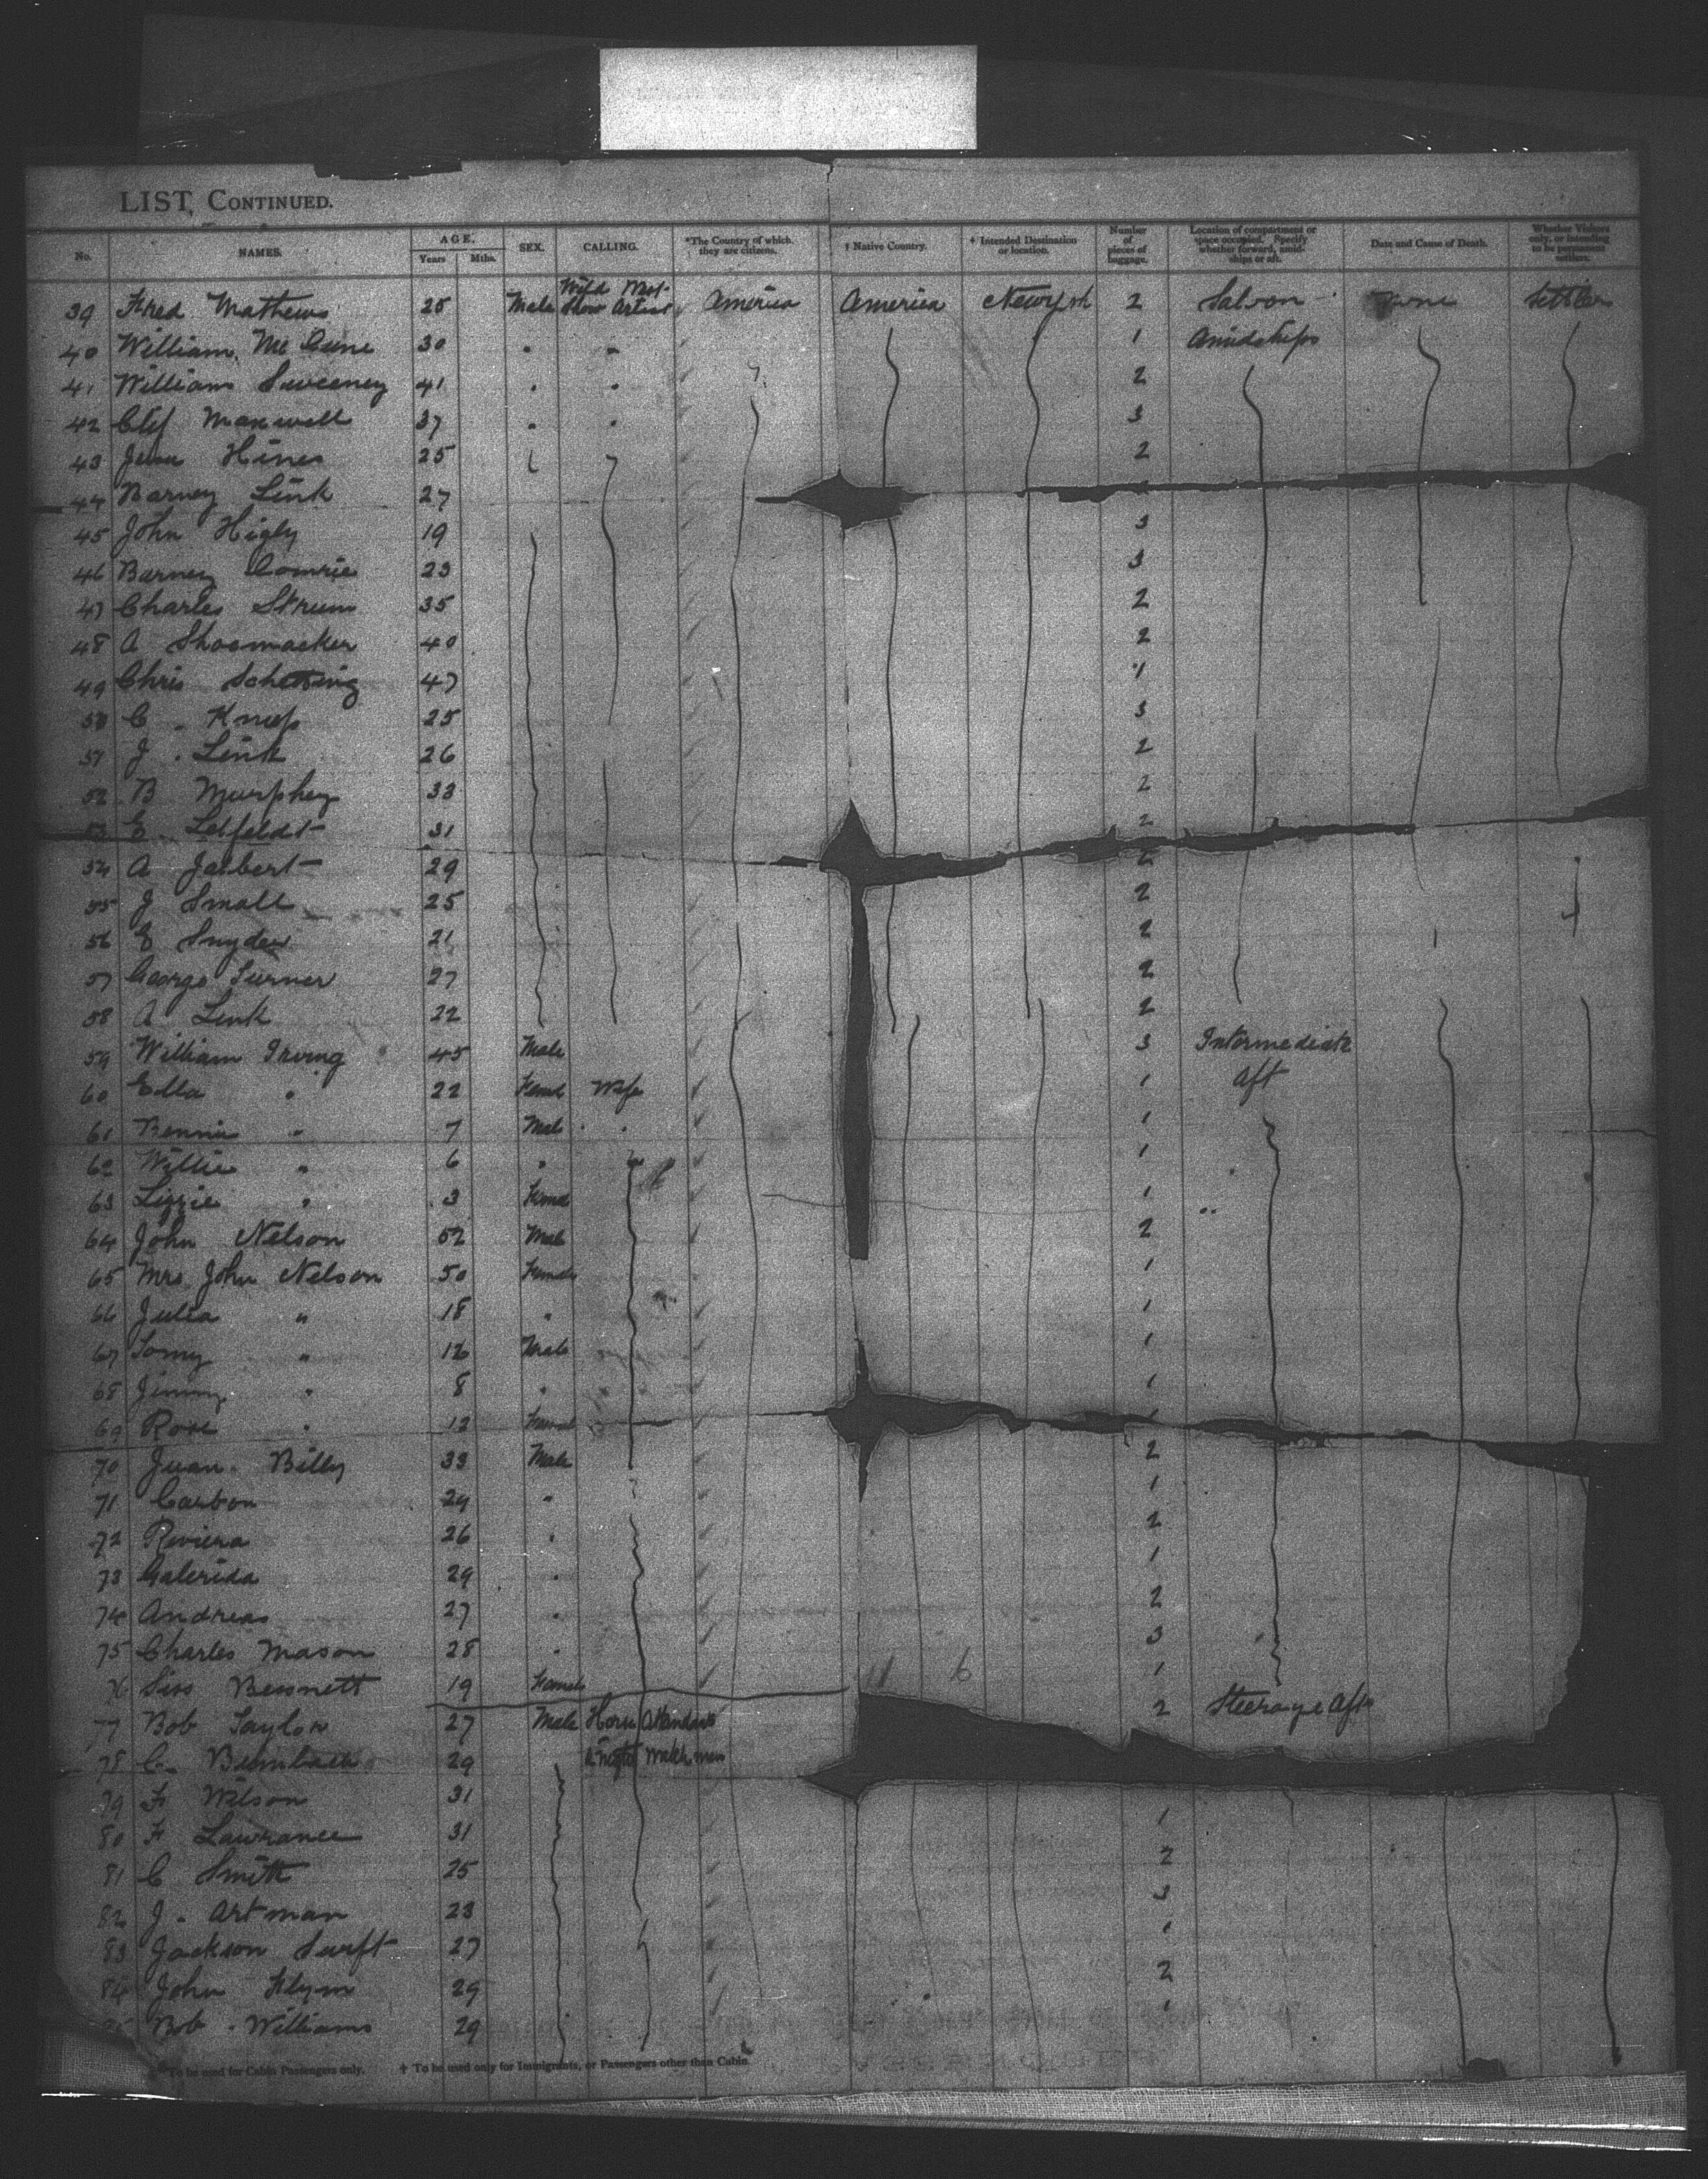 LIST, CONTINUED.
No. NAMES. AGE. Years Mths. SEX. CALLING. *The Country of which they are citizens. † Native Country. † Intended Destination or location. Number of pieces of baggage. Location of compartment or space occupied. Specify whether forward, amidships or aft. Date and Cause of Death. Whether Visitors only, or intending to be permanent settlers.
39 Fred Mathews 25 Male Wild West Show Artist America America Newyork 2 Saloon None Settler
40 William Mc Cune 30 " " 1 Amidships
41 William Sweeney 41 " " 2
42 Clif Maxwell 37 " " 3
43 Hines 25 2
44 Barney Link 27
45 John Higly 19 3
46 Barney 23 3
47 Charles Strum 35 2
48 A Shoomacker 40 2
49 Chris 47 1
50 C. 25 3
51 J. Link 26 2
52 B Murphey 33 2
53 31 2
54 A Jalbert 29 2
55 J Small 25 2
56 E Snyder 21 2
57 George Turner 27 2
58 A Link 22 2
59 William Irving 45 Male 3 Intermediate
60 Ella " 22 Femal Wife 1 Aft
61 Bennie " 7 Male " 1
62 Willie " 6 " 1
63 Lizzie " 3 Femal 1
64 John Nelson 52 Male 2
65 Mrs John Nelson 50 Female 1
66 Julia " 18 " 1
67 Tomy " Male 1
68 Jimmy " 8 " 1
69 Rose " 12 Femal
70 Juan. Billy 33 Male 2
71 Carbon " 1
72 Riviera 26 " 2
73 Galerida 29 " 1
74 Andreas 27 " 2
75 Charles Mason 28 " 3
76 Bennett 19 Female 11 6 1
77 Bob Taylor 27 Male Horse Attendants 2 Steerage Aft
78 C. 29 & Night Watch men
79 F Wilson 31 1
80 F Lawrance 31
81 C Smith 25 2
82 J. Artman 23 3
83 Jackson Swift 27 1
84 John Flynn 29 2
85 Bob Williams 29 1
*To be used for Cabin Passengers only. † To be used only for Immigrants, or Passengers other than Cabin.